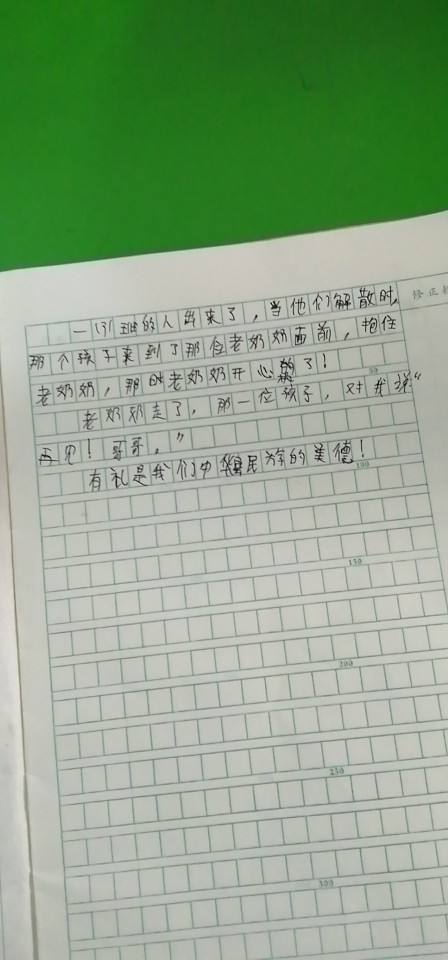 一（1）班的人出来了，当他们解散时，
那个孩子来到了那位老奶奶面前，抱住
老奶奶，那时老奶奶开心极了！
老奶奶走了，那一位孩子，对我说“
再见！哥哥。”
有礼是我们中华民族的美德！
修正
50
100
150
200
250
300